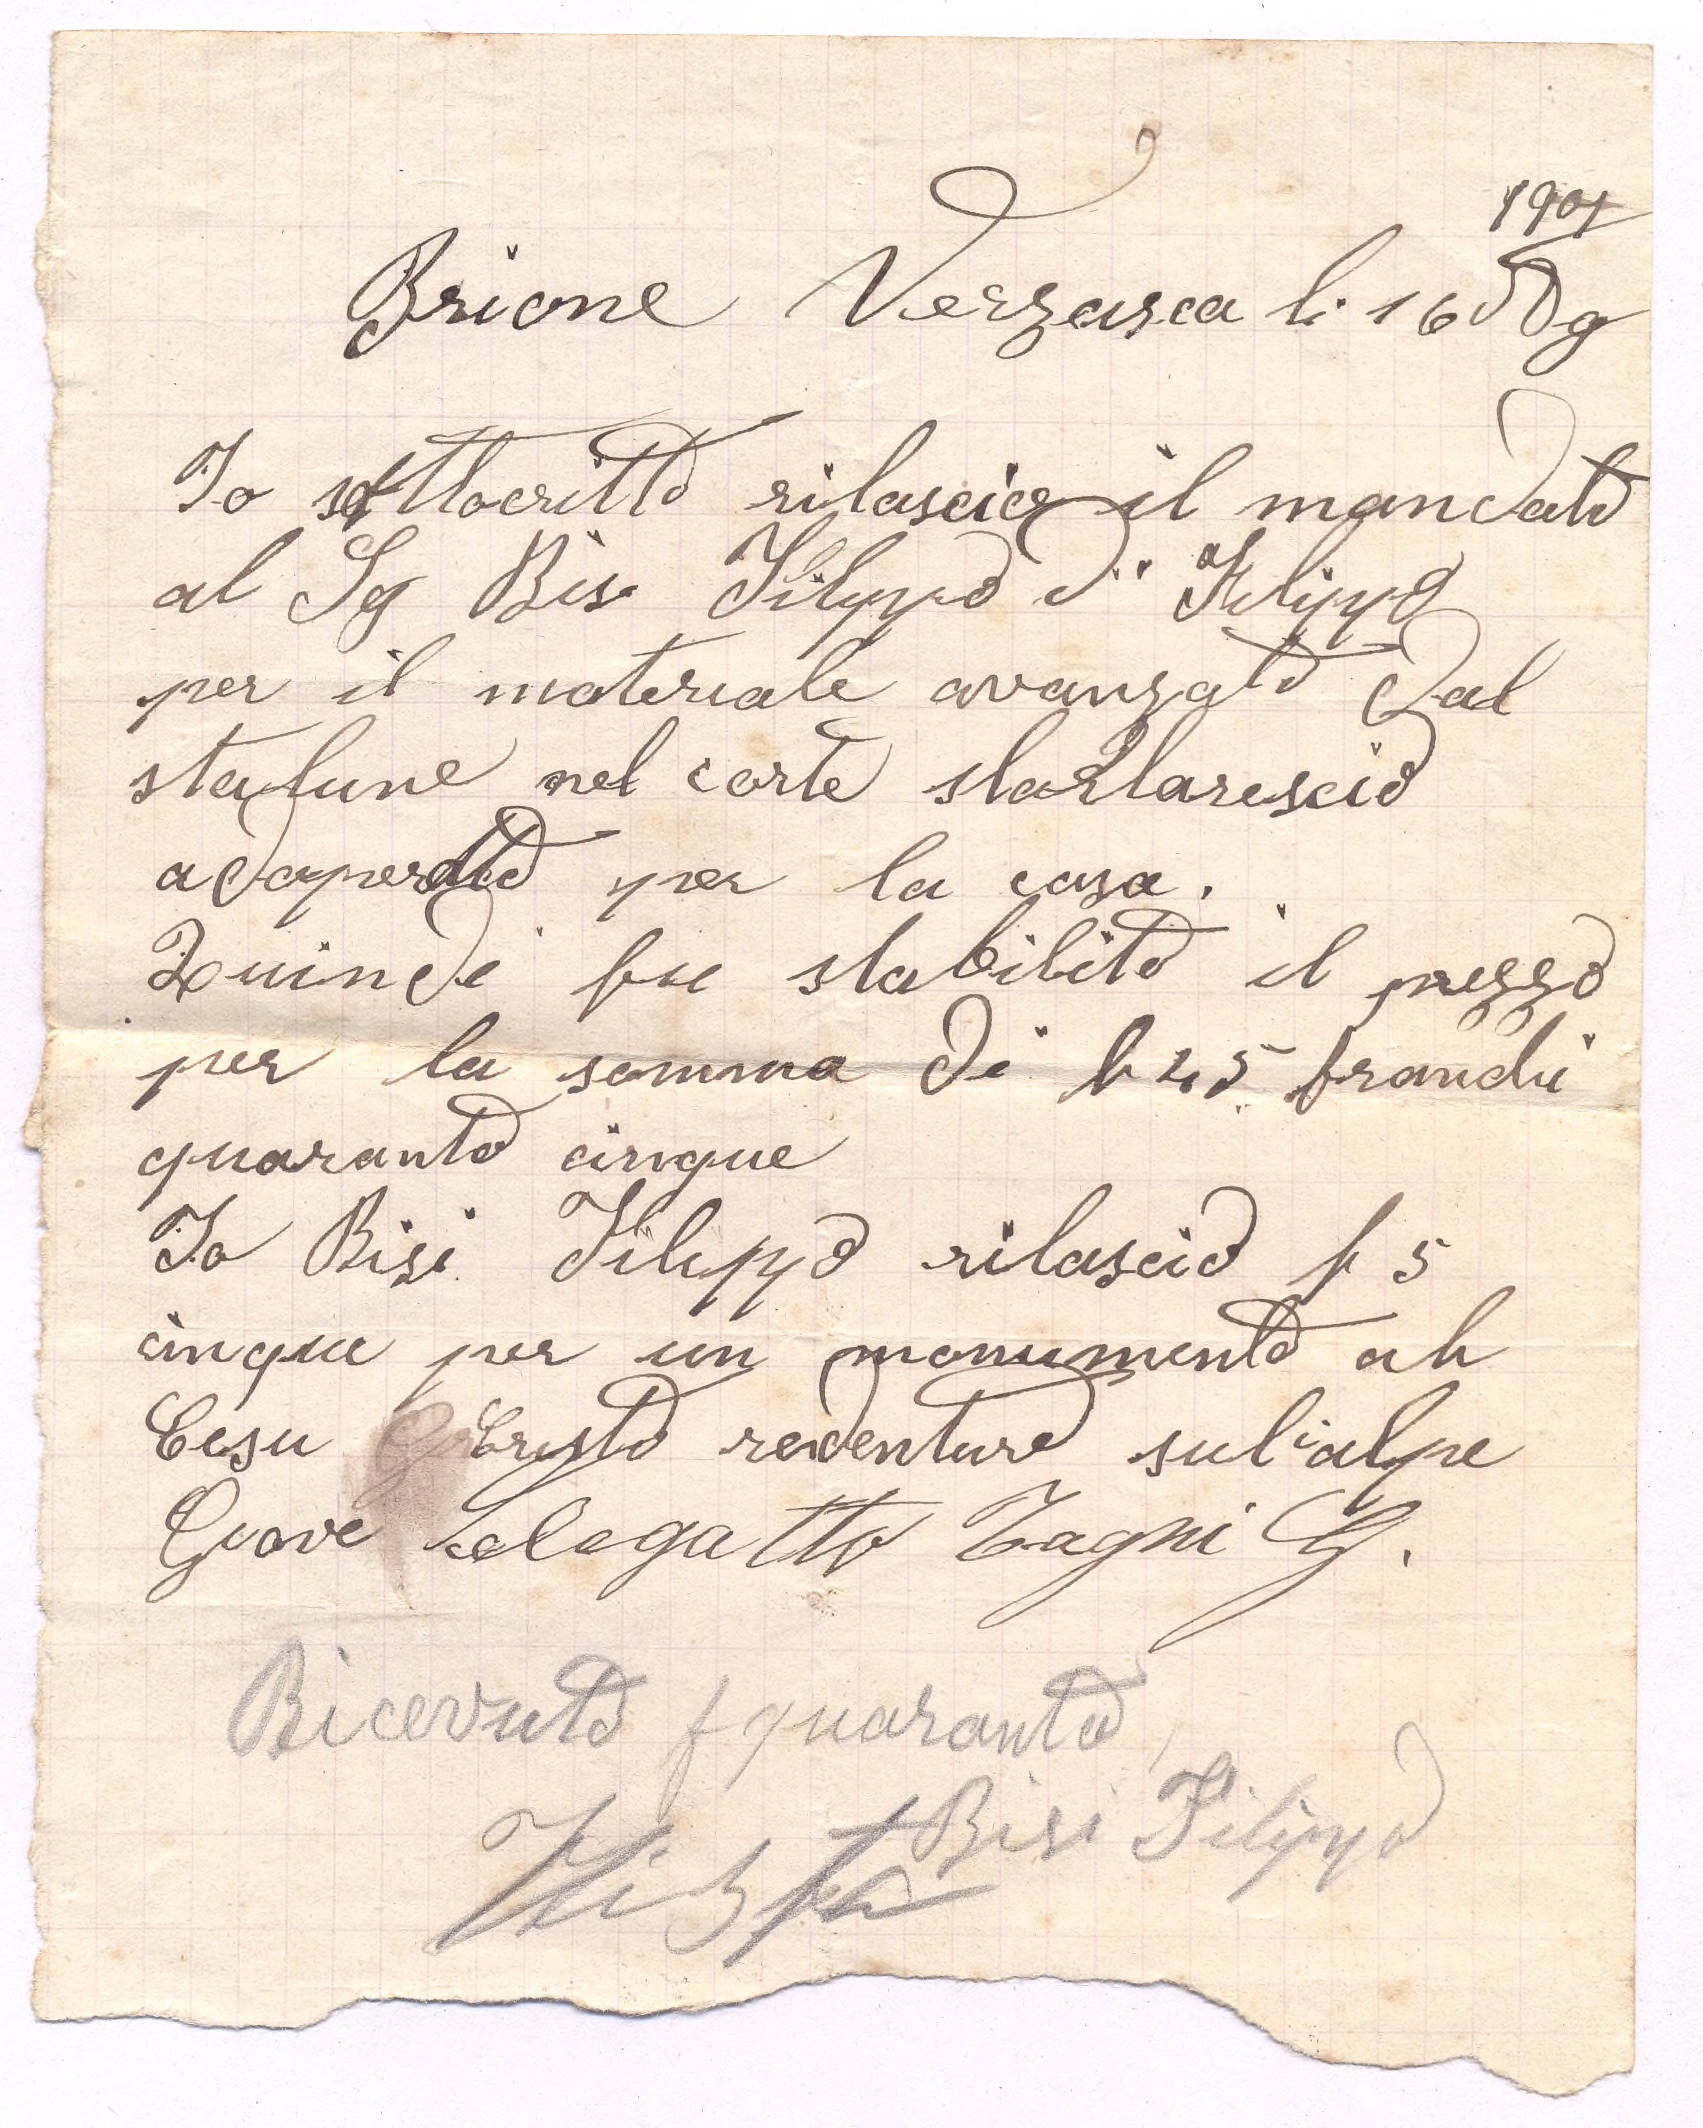 1901
Brione Verzasca li 16
Io sottocritto rilascio il mandato
al Sg Bisi Filippo di Filippo
per il materiale avanzato dal
nel corte
adoperatto per la casa.
Quindi fu stabilito il prezzo
per la somma di f 45 franchi
quaranta cinque
Io Bisi Filippo rilascio f 5
cinque per un monumento al
Cristo redentore sul alpe
Tagni G.
Ricevuto f quaranta
Bisi Filippo